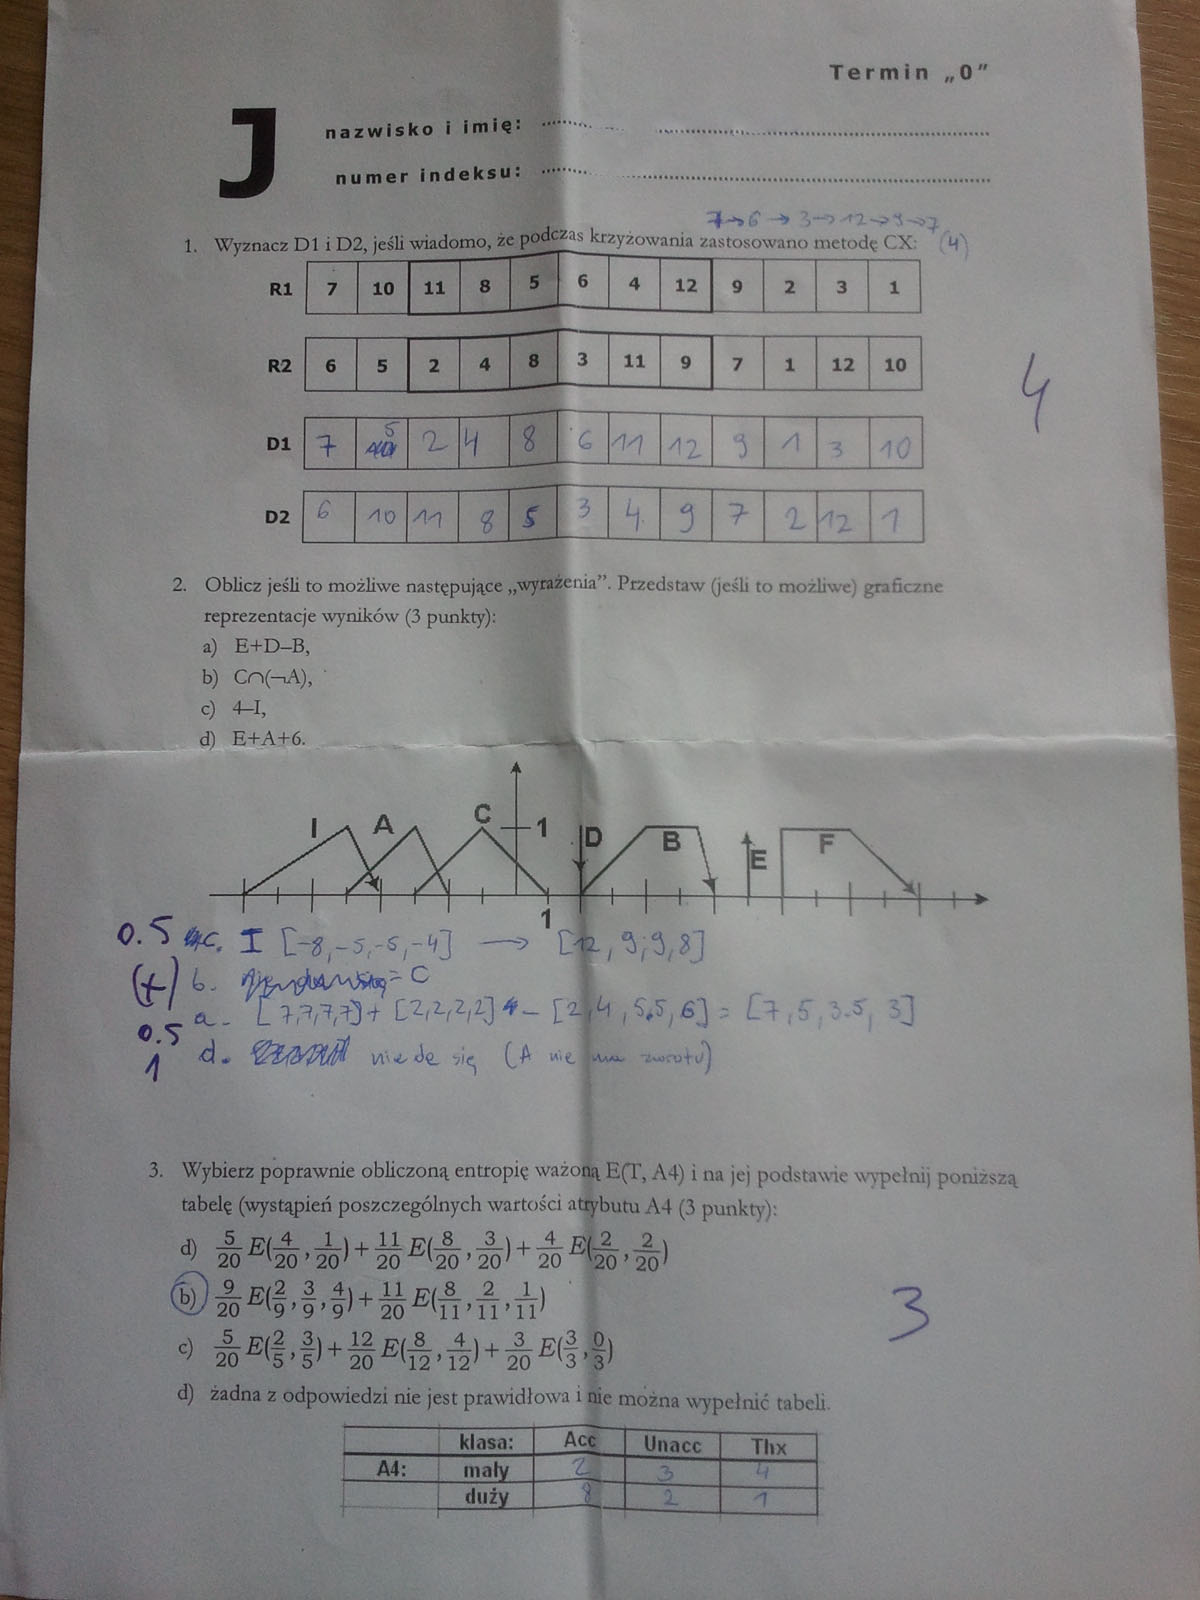 Termin „0”
J
nazwisko i imię:
numer indeksu:
7→6→3→12→9→7
1. Wyznacz D1 i D2, jeśli wiadomo, że podczas krzyżowania zastosowano metodę CX: (4)
R1 7 10 11 8 5 6 4 12 9 2 3 1
R2 6 5 2 4 8 3 11 9 7 1 12 10
4
D1 7 5 2 4 8 6 11 12 9 1 3 10
D2 6 10 11 8 5 3 4 9 7 2 12 1
2. Oblicz jeśli to możliwe następujące „wyrażenia”. Przedstaw (jeśli to możliwe) graficzne
reprezentacje wyników (3 punkty):
a) E+D–B,
b) C∩(¬A),
c) 4–I,
d) E+A+6.
I A C 1 D B E F
1
0.5 c. I [-8,-5,-5,-4] → [12,9,9,8]
(+) b. = C
0.5 a. [7,7,7,7]+[2,2,2,2] - [2,4,5.5,6] = [7,5,3.5,3]
1 d. nie da się (A nie ma zwrotu)
3. Wybierz poprawnie obliczoną entropię ważoną E(T, A4) i na jej podstawie wypełnij poniższą
tabelę (wystąpień poszczególnych wartości atrybutu A4 (3 punkty):
d) 5/20 E(4/20, 1/20) + 11/20 E(8/20, 3/20) + 4/20 E(2/20, 2/20)
b) 9/20 E(2/9, 3/9, 4/9) + 11/20 E(8/11, 2/11, 1/11)
3
c) 5/20 E(2/5, 3/5) + 12/20 E(8/12, 4/12) + 3/20 E(3/3, 0/3)
d) żadna z odpowiedzi nie jest prawidłowa i nie można wypełnić tabeli.
klasa: Acc Unacc Thx
A4: mały 2 3 4
duży 8 2 1